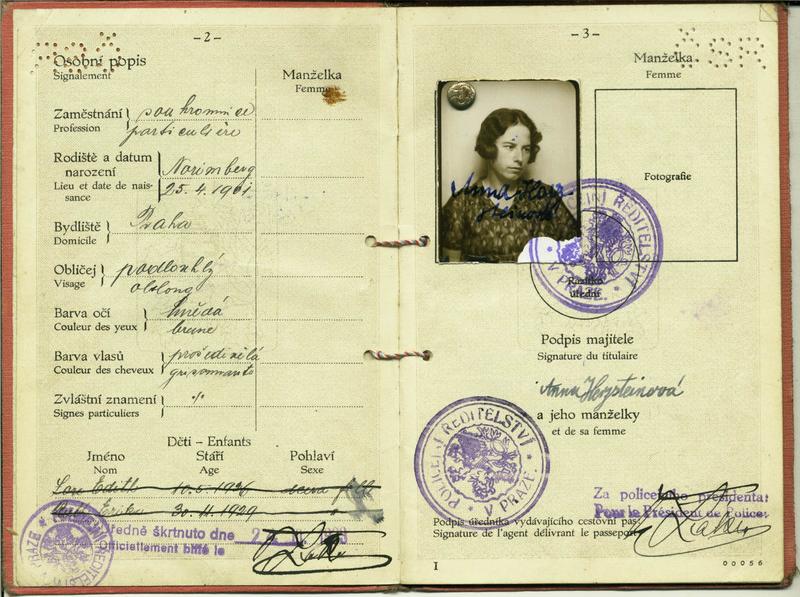 - 2 -
Osobní popis
Signalement
Manželka
Femme
Zaměstnání
Profession
soukromnice
particulière
Rodiště a datum
narození
Lieu et date de nais-
sance
Norimberg
25. 4. 1901
Bydliště
Domicile
Praha
Obličej
Visage
podlouhlý
oblong
Barva očí
Couleur des yeux
hnědá
brune
Barva vlasů
Couleur des cheveux
prošedivělá
grisonnante
Zvláštní znamení
Signes particuliers
./.
Děti – Enfants
Jméno
Nom
Stáří
Age
Pohlaví
Sexe
Edith 10.5.1926
Erika 30. 11. 1929
Úředně škrtnuto dne
Officiellement biffé le
- 3 -
ČSR
Manželka
Femme
Fotografie
Anna Herz-
steinová
POLICEJNÍ ŘEDITELSTVÍ
V PRAZE
Razítko
úřední
Podpis majitele
Signature du titulaire
Anna Herzsteinová
a jeho manželky
et de sa femme
POLICEJNÍ ŘEDITELSTVÍ
V PRAZE
Za policejního presidenta:
Pour le Président de Police:
Podpis úředníka vydávajícího cestovní pas
Signature de l'agent délivrant le passeport
I
00056